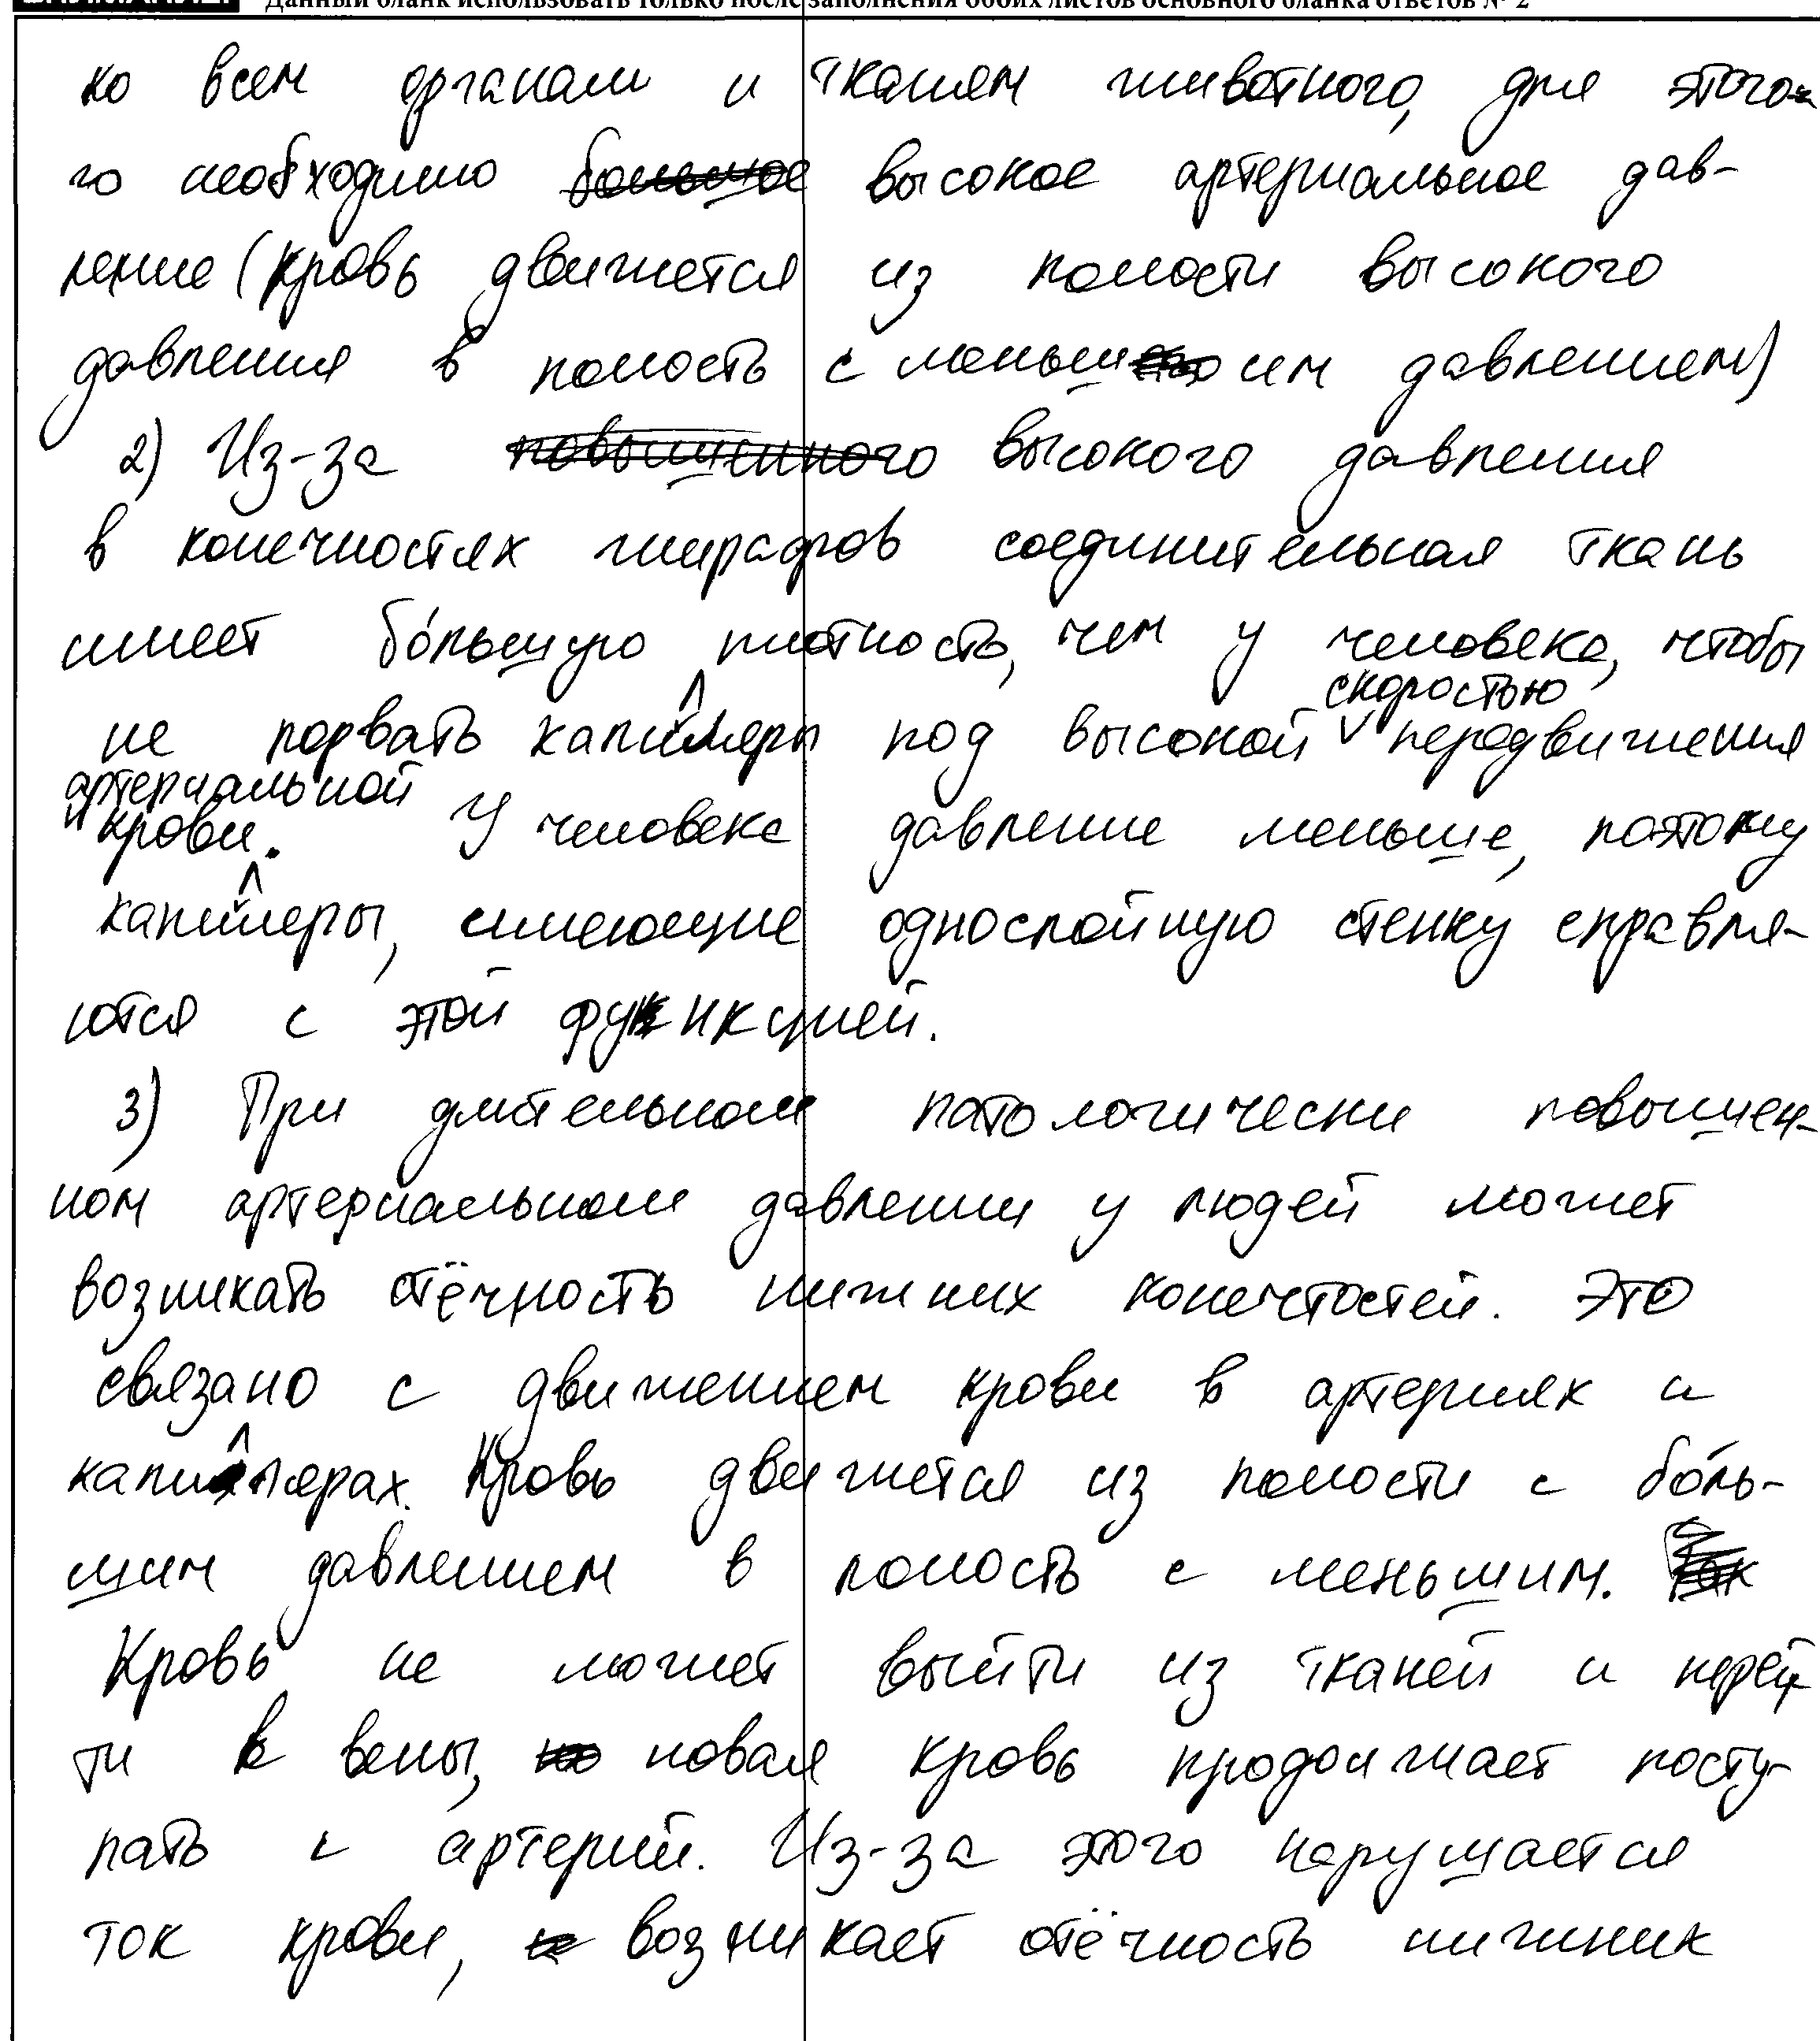 Данный бланк использовать только после заполнения обоих листов основного бланка ответов № 2
ко всем органам и тканям животного, для этого
го необходимо ~~большое~~ высокое артериальное дав-
ление (кровь движется из полости высокого
давления в полость с меньшим давлением)
2) Из-за ~~повышенного~~ высокого давления
в конечностях жирафов соединительная ткань
имеет бо́льшую плотность, чем у человека, чтобы
не порвать капилляры под высокой скоростью передвижения
артериальной крови. У человека давление меньше, поэтому
капилляры, имеющие однослойную стенку справля-
ются с этой функцией.
3) При длительном патологически повышен-
ном артериальном давлении у людей может
возникать отёчность нижних конечностей. Это
связано с движением крови в артериях и
капиллярах. Кровь движется из полости с бо́ль-
шим давлением в полость с меньшим. ~~Так~~
Кровь не может выйти из тканей и перей-
ти в вены, ~~но~~ новая кровь продолжает посту-
пать с артерий. Из-за этого нарушается
ток крови, возникает отёчность нижних